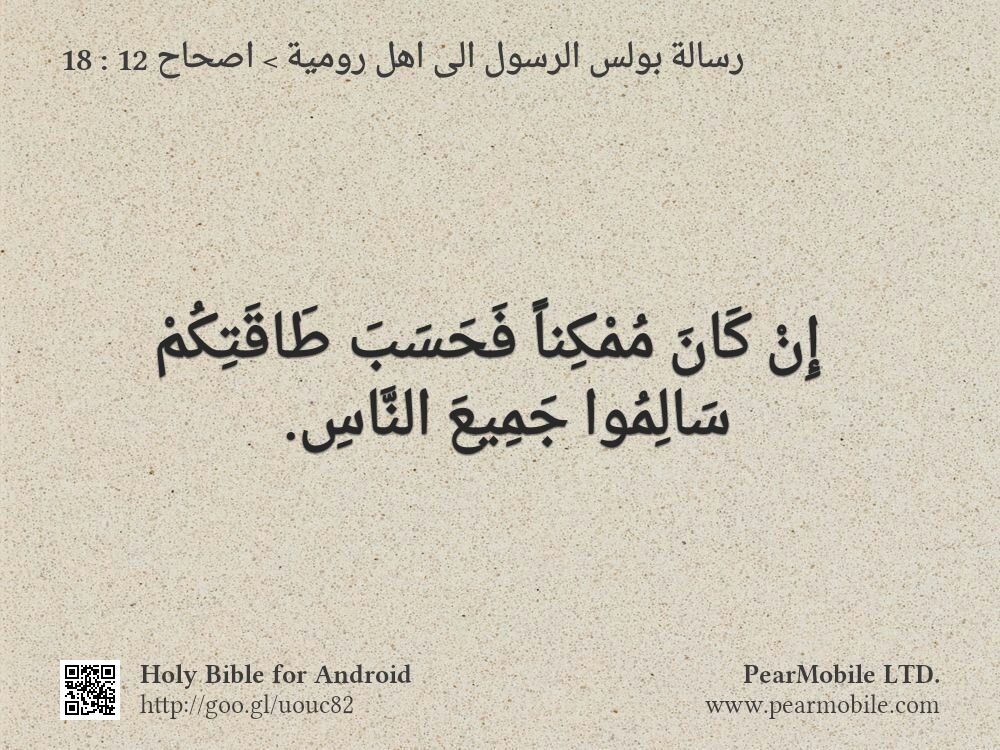 رسالة بولس الرسول الى اهل رومية > اصحاح 12 : 18
إِنْ كَانَ مُمْكِناً فَحَسَبَ طَاقَتِكُمْ
سَالِمُوا جَمِيعَ النَّاسِ.
Holy Bible for Android
http://goo.gl/uouc82
PearMobile LTD.
www.pearmobile.com